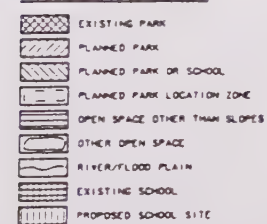 EXISTING PARK
PLANNED PARK
PLANNED PARK OR SCHOOL
PLANNED PARK LOCATION ZONE
OPEN SPACE OTHER THAN SLOPES
OTHER OPEN SPACE
RIVER/FLOOD PLAIN
EXISTING SCHOOL
PROPOSED SCHOOL SITE